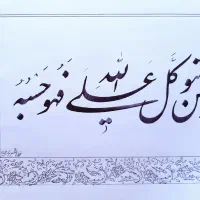 من یتوکل علی الله فهو حسبه